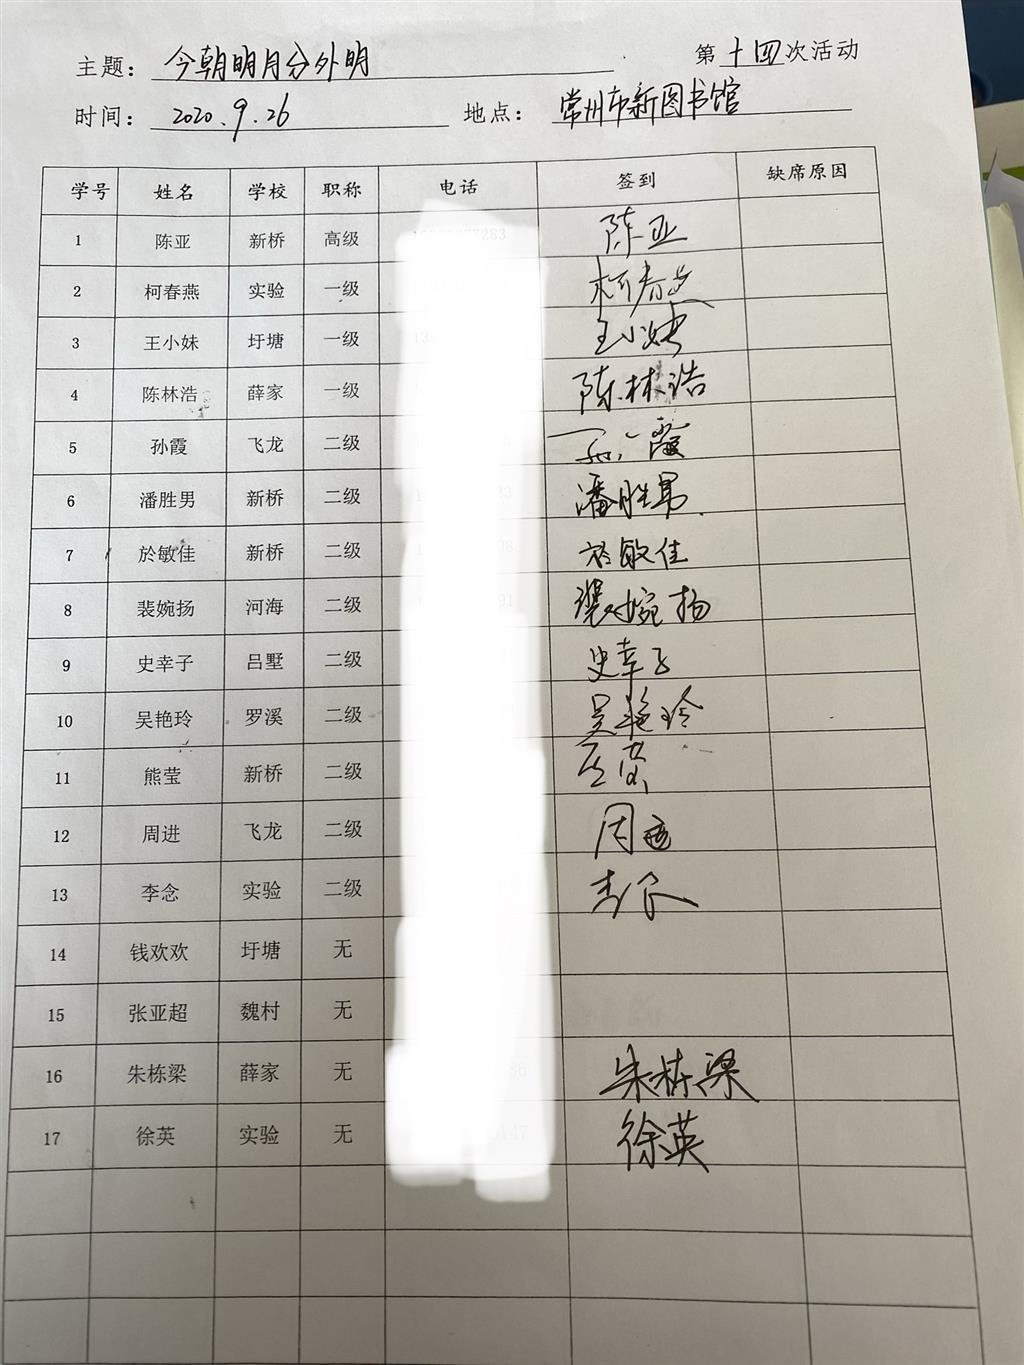 主题： 今朝明月分外明 第十四次活动
时间： 2020.9.26 地点： 常州市新图书馆
学号 姓名 学校 职称 电话 签到 缺席原因
1 陈亚 新桥 高级 7283 陈亚
2 柯春燕 实验 一级 柯春燕
3 王小妹 圩塘 一级 王小妹
4 陈林浩 薛家 一级 陈林浩
5 孙霞 飞龙 二级 孙霞
6 潘胜男 新桥 二级 潘胜男
7 於敏佳 新桥 二级 於敏佳
8 裴婉扬 河海 二级 裴婉扬
9 史幸子 吕墅 二级 史幸子
10 吴艳玲 罗溪 二级 吴艳玲
11 熊莹 新桥 二级
12 周进 飞龙 二级 周进
13 李念 实验 二级 李念
14 钱欢欢 圩塘 无
15 张亚超 魏村 无
16 朱栋梁 薛家 无 朱栋梁
17 徐英 实验 无 147 徐英